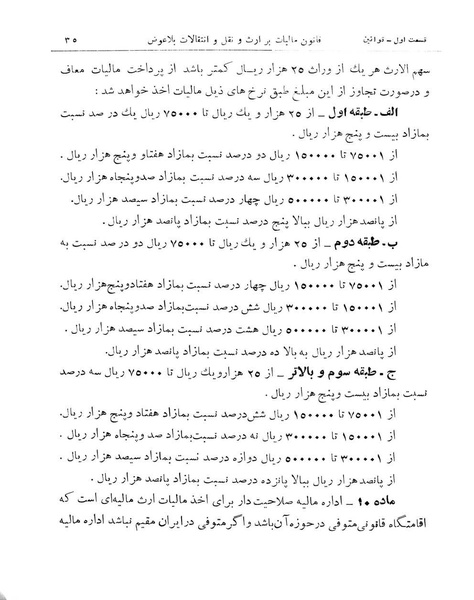 قسمت اول - قوانین    قانون مالیات بر ارث و نقل و انتقالات بلاعوض    ۳۵
سهم الارث هر یك از وراث ۲۵ هزار ریال کمتر باشد از پرداخت مالیات معاف
و درصورت تجاوز از این مبلغ طبق نرخ های ذیل مالیات اخذ خواهد شد :
الف - طبقه اول – از ۲۵ هزار و یك ریال تا ۷۵۰۰۰ ریال یك در صد نسبت
بمازاد بیست و پنج هزار ریال
از ۷۵۰۰۱ تا ۱۵۰۰۰۰ ریال دو درصد نسبت بمازاد هفتاد و پنج هزار ریال .
از ۱۵۰۰۰۱ تا ۳۰۰۰۰۰ ریال سه درصد نسبت بمازاد صدو پنجاه هزار ریال.
از ۳۰۰۰۰۱ تا ۵۰۰۰۰۰ ریال چهار درصد نسبت بمازاد سیصد هزار ریال.
از پانصد هزار ریال ببالا پنج درصد نسبت بمازاد پانصد هزار ریال .
ب - طبقه دوم – از ۲۵ هزار و یك ریال تا ۷۵۰۰۰ ریال دو درصد نسبت به
مازاد بیست و پنج هزار ریال .
از ۷۵۰۰۱ تا ۱۵۰۰۰۰ ریال چهار درصد نسبت بمازاد هفتادوپنج هزار ریال .
از ۱۵۰۰۰۱ تا ۳۰۰۰۰۰ ریال شش درصد نسبت بمازاد صدوپنجاه هزار ریال.
از ۳۰۰۰۰۱ تا ۵۰۰۰۰۰ ریال هشت درصد نسبت بمازاد سیصد هزار ریال .
از پانصد هزار ریال به بالا ده درصد نسبت بمازاد پانصد هزار ریال.
ج - طبقه سوم و بالاتر – از ۲۵ هزارویك ریال تا ۷۵۰۰۰ ریال سه درصد
نسبت بمازاد بیست وپنج هزار ریال .
از ۷۵۰۰۱ تا ۱۵۰۰۰۰ ریال شش درصد نسبت بمازاد هفتاد وپنج هزار ریال .
از ۱۵۰۰۰۱ تا ۳۰۰۰۰۰ ریال نه درصد نسبت بمازاد صد و پنجاه هزار ریال .
از ۳۰۰۰۰۱ تا ۵۰۰۰۰۰ ریال دوازه درصد نسبت بمازاد سیصد هزار ریال .
از پانصد هزار ریال ببالا پانزده درصد نسبت بمازاد پانصد هزار ریال .
ماده ۱۰ – اداره مالیه صلاحیت دار برای اخذ مالیات ارث مالیه‌ای است که
اقامتگاه قانونی متوفی در حوزه آن باشد واگر متوفی در ایران مقیم نباشد اداره مالیه